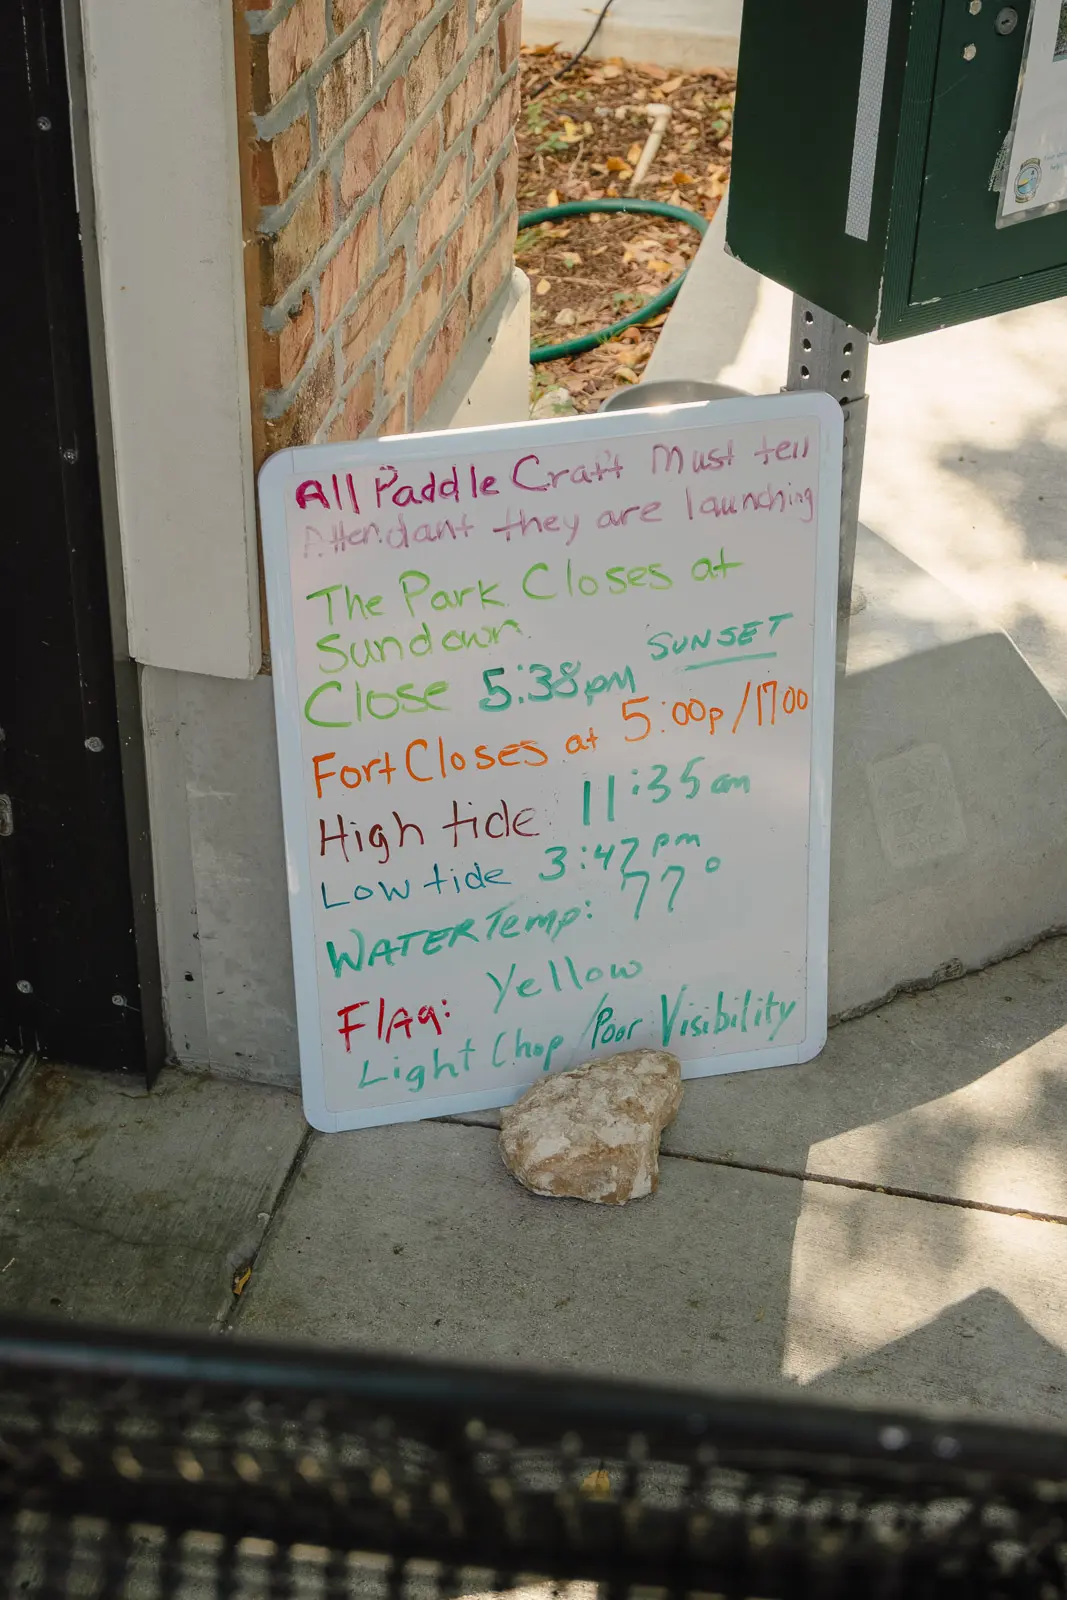 All Paddle Craft Must tell
Attendant they are launching
The Park Closes at
Sundown
SUNSET
Close 5:38pm
Fort Closes at 5:00p/1700
High tide 11:35am
Low tide 3:47pm
WATER Temp: 77°
Flag: Yellow
Light Chop/Poor Visibility